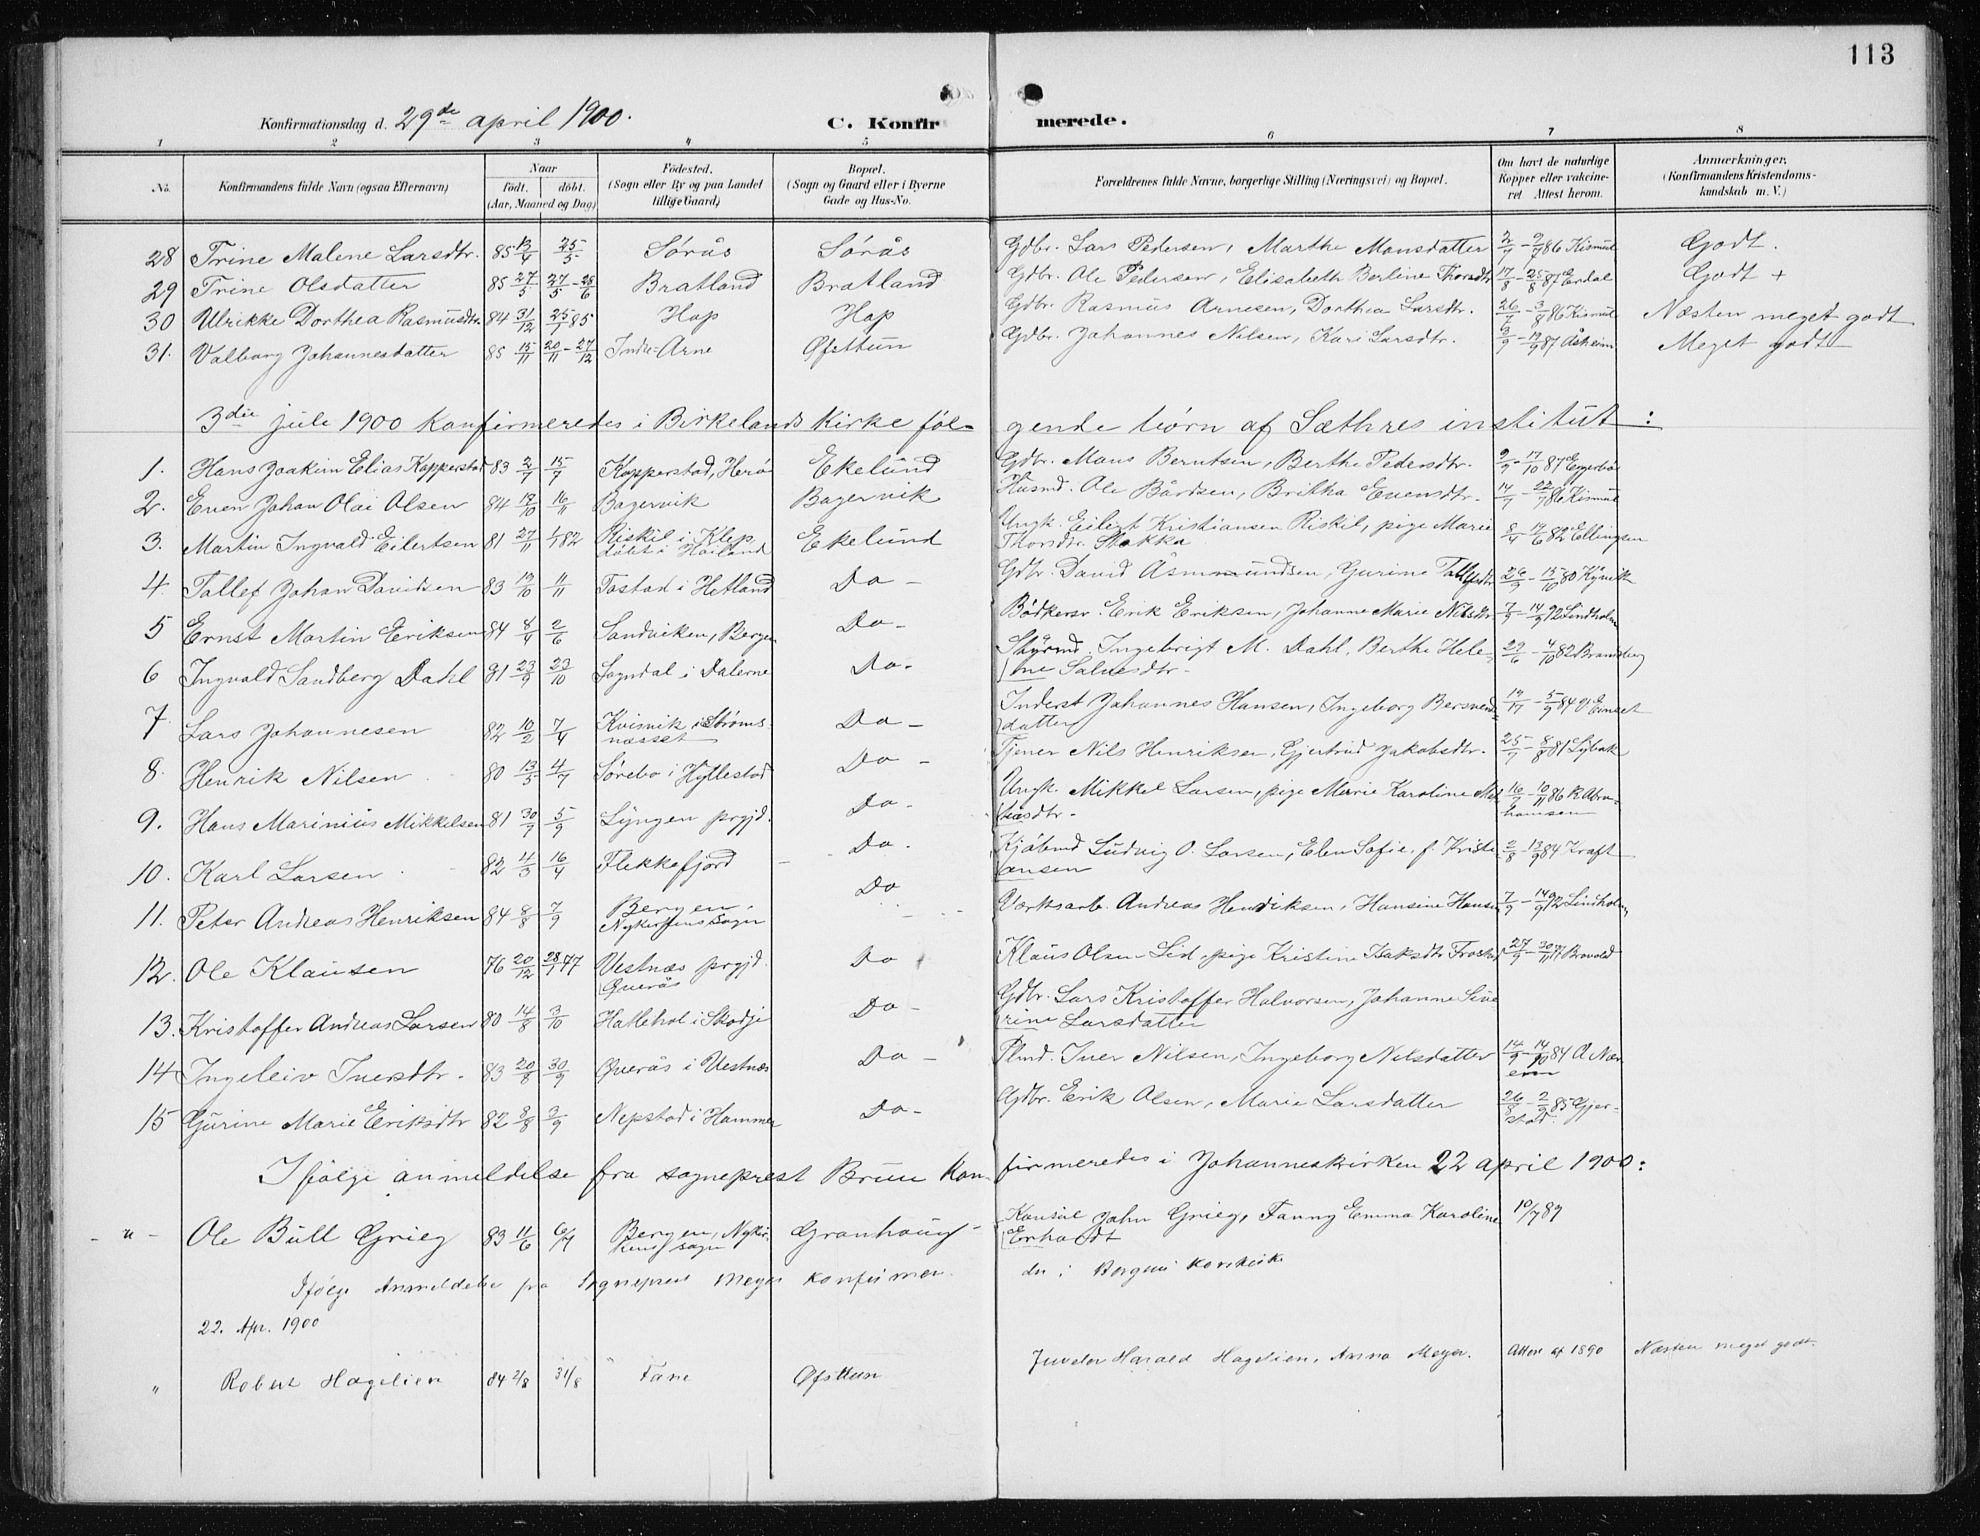 113
Konfirmationsdag d. 29de april 1900.
C. Konfirmerede.
1 2 3 4 5 6 7 8
No. Konfirmandens fulde Navn (ogsaa Efternavn) Naar født. døbt. (Aar, Maaned og Dag) Fødested. (Sogn eller By og paa Landet tillige Gaard) Bopæl. (Sogn og Gaard eller i Byerne Gade og Hus-No. Forældrenes fulde Navne, borgerlige Stilling (Næringsvei) og Bopæl. Om havt de naturlige Kopper eller vakcineret. Attest herom. Anmerkninger, (Konfirmandens Kristendomskundskab m. V.)
28 Trine Malene Larsdtr. 85 13/4 25/5 Sørås Sørås Gdbr. Lars Pedersen, Marthe Monsdatter 2/9 - 9/9 86 Kismul Godt.
29 Trine Olsdatter 85 27/5 27/5 - 28/6 Bratland Bratland Gdbr. Ole Pedersen, Elisabeth Berline Thorsdtr 17/8 - 25/8 87 Erdal Godt +
30 Ulrikke Dorthea Rasmusdtr. 84 31/12 25/1 85 Hop Hop Gdbr. Rasmus Arnesen, Dorthea Larsdtr. 26/7 - 3/8 86 Kismul Næsten meget godt
31. Valborg Johannesdatter 85 15/11 20/11 - 27/12 Indre-Arne Øfsttun Gdbr. Johannes Nilsen, Kari Larsdtr. 87 Åsheim Meget godt
3die juli 1900 konfirmeredes i Birkelands Kirke følgende børn af Sæthres institut:
1. Hans Joakim Elias Kopperstad 83 2/7 15/7 Kopperstad, Herø Ekelund Gdbr. Mons Berntsen, Berthe Pedersdtr. 9/9 - 17/10 87 Eggesbø
2. Even Johan Olai Olsen 84 19/10 16/11 Bogervik Bogervik Husmd. Ole Bårdsen, Britha Evensdtr. 14/7 - 22/7 86 Kismul
3. Martin Ingvald Eilertsen 81 27/11 1/1 82 Riskil i Klep, døbt i Høiland Ekelund Ungk. Eilert Kristiansen Riskil, pige Marie Thorsdtr. Stokka 8/4 - 17/6 82 Ellingsen
4. Tollef Johan Davidsen 83 19/10 11/11 Tostad i Hetland Do - Gdbr. David Åsmundsen, Gurine Tollefsdtr 80
5 Ernst Martin Eriksen 84 8/4 2/6 Sandviken, Bergen Do - Bødkersv. Erik Eriksen, Johanne Marie Nilsdtr 7/9 - 14/9 92 Lindholm
6 Ingvald Sandberg Dahl 81 23/9 23/10 Sogndal i Dalerne Do - Ingebrigt M. Dahl, Berthe Helene Salvesdtr - 27/6 - 4/10 82 Brandberg
7 Lars Johannesen 82 10/2 7/4 Kvisvik i Strømsnæsset Do - Inderst Johannes Hansen, Ingeborg Bersvendsdatter 5/9 84
8. Henrik Nilsen 80 13/3 4/7 Sørebø i Hyllestad Do - Tjener Nils Henriksen, Gjertrud Jakobsdtr. 25/7 - 8/8 81
9. Hans Marinius Mikkelsen 81 30/7 5/9 Lyngen prgjd. Do - Ungk. Mikkel Larsen, pige Marie Karoline 16/9 - 10/11 86 R. Abrahamsen
10. Karl Larsen 82 4/3 16/4 Flekkefjord Do - Kjøbmd Ludvig O. Larsen, Elen Sofie f. Kristiansen 2/8 - 13/9 84 Kraft
11. Peter Andreas Henriksen 84 8/8 7/9 Bergen, Nykirkens sogn Do Verksarb. Andreas Henriksen, Hansine Hansen 7/9 - 14/9 92 Lindholm
12. Ole Klausen 76 20/12 28/1 77 Vestnæs prgjd. Øverås Do Klaus Olsen Lid, pige Kristine Isaksdtr
13. Kristoffer Andreas Larsen 80 14/8 3/10 Hatlehol i Skodje Do - Gdbr. Lars Kristoffer Halvorsen, Johanne Sivrine Larsdatter
14 Ingeleiv Iversdtr. 83 20/8 30/9 Øverås i Vestnæs Do - Plmd. Iver Nilsen, Ingeborg Nilsdatter 14/9 - 14/10 84
15 Gurine Marie Eriksdtr 82 8/8 3/9 Nepstad i Hammer Do - Gdbr. Erik Olsen, Marie Larsdatter 26/8 - 2/9 85 Gjerstad.
Ifølge anmeldelse fra sogneprest Bruu konfirmeredes i Johanneskirken 22 april 1900:
- " - Ole Bull Grieg 83 11/6 6/9 Bergen, Nykirkens sogn Granhaug - Konsul John Grieg, Fanny Emma Karoline Erhardt 10/7 89
Ifølge Anmeldelse fra Sogneprest Meyer konfirmeredes i Bergens Korskirke
22. Apr. 1900
" Robert Hagelien 84 2/8 31/8 Fane Øfsttun Juveler Harald Hagelien, Anna Meyer. Attest af 1890 Næsten meget godt.